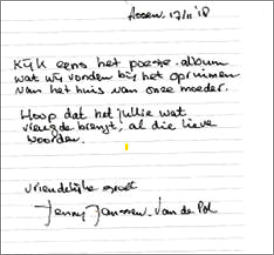 Assen, 17/11 '18
Kijk eens het poëzie-album
wat wij vonden bij het opruimen
van het huis van onze moeder.
Hoop dat het jullie wat
vreugde brengt, al die lieve
woorden.
vriendelijke groet
Jenny Janssen-van de Pol